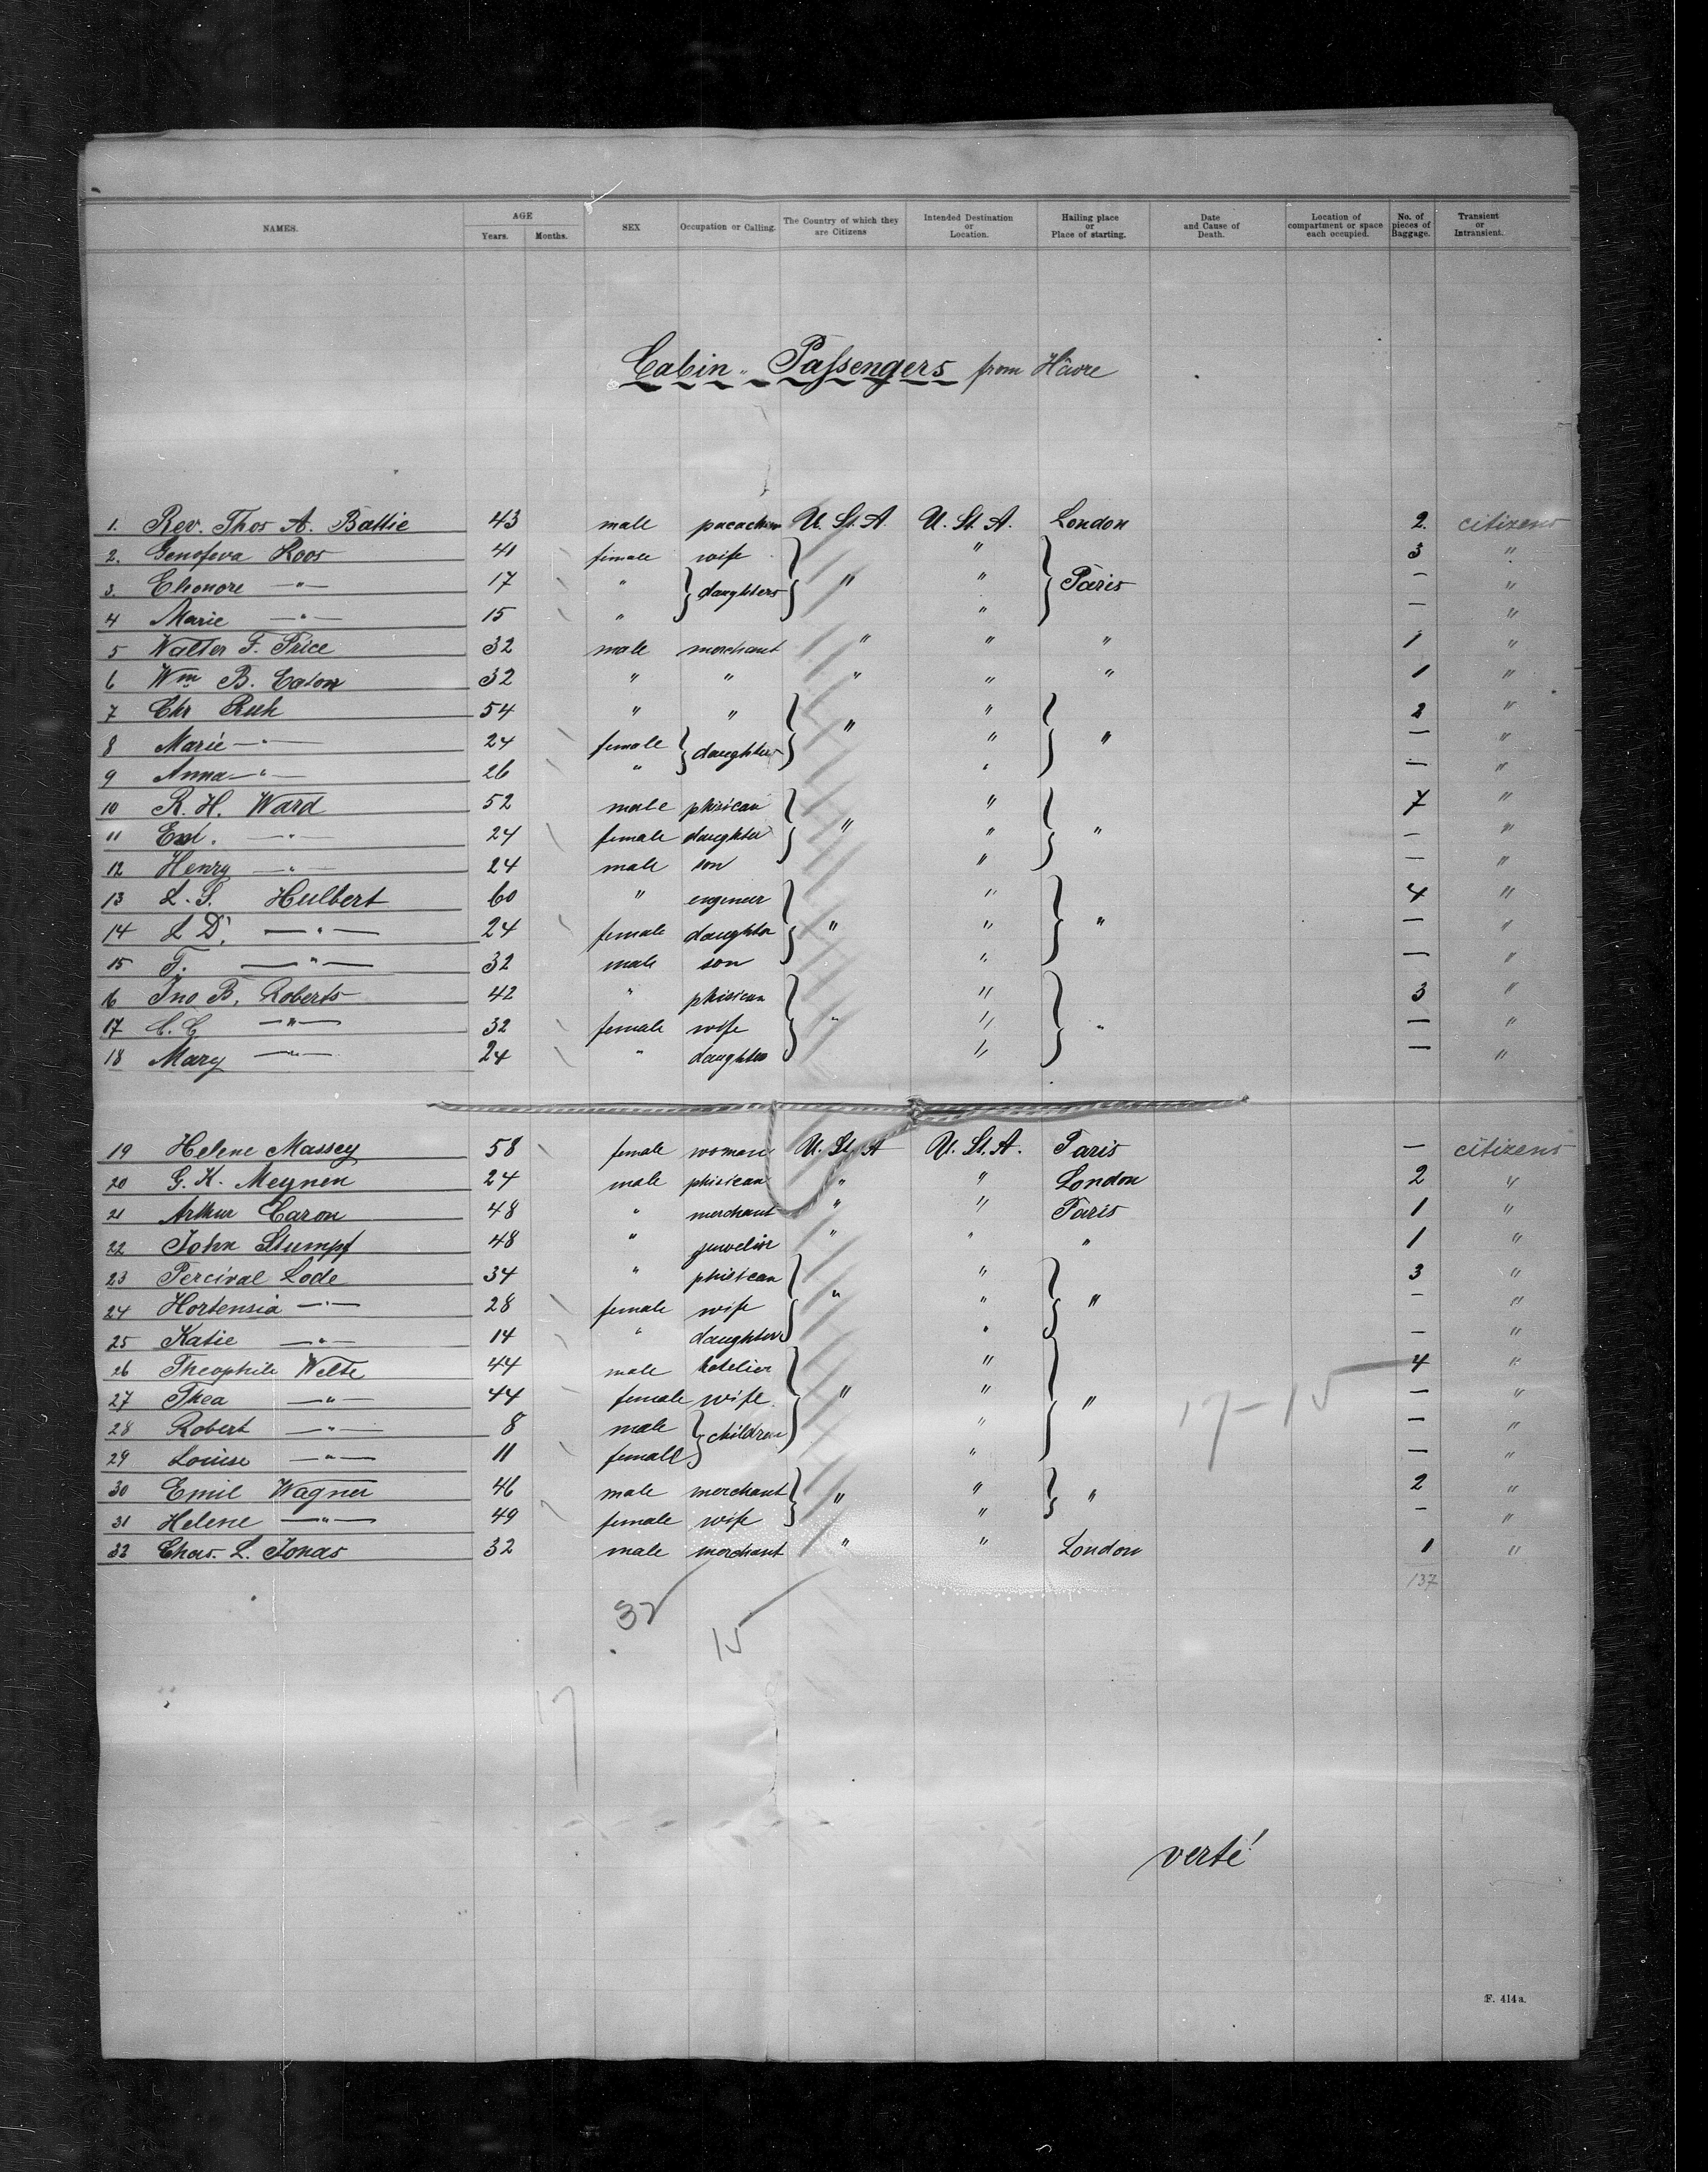 NAMES. AGE Years. Months. SEX Occupation or Calling. The Country of which they are Citizens Intended Destination or Location. Hailing place or Place of starting. Date and Cause of Death. Location of compartment or space each occupied. No. of pieces of Baggage. Transient or Intransient.
Cabin Passengers from Hâvre
1. Rev. Thos A. Battie 43 male U. St. A. U. St. A. London 2. citizens
2. Genofeva Roos 41 female wife " 3 "
3 Eleonore — " — 17 " daughters " " Paris — "
4 Marie — " — 15 " " — "
5 Walter F. Price 32 male merchant " " " 1 "
6 Wm B. Eaton 32 " " " " " 1 "
7 Chr Ruh 54 " " " " 2 "
8 Marie — " — 24 female daughters " " — "
9 Anna — " — 26 " " — "
10 R. H. Ward 52 male phisican " 7 "
11 — " — 24 female daughter " " " — "
12 Henry — " — 24 male son " — "
13 L. S. Hulbert 60 " engeneer " 4 "
14 L D. — " — 24 female daughter " " " — "
15 F. — " — 32 male son " — "
16 Jno B. Roberts 42 " phisican " 3 "
17 C. C. — " — 32 female wife " " " — "
18 Mary — " — 24 " daughter " — "
19 Helene Massey 58 female woman U. St. A U. St. A. Paris — citizens
20 G. K. Meynen 24 male phisican " " London 2 "
21 Arthur Caron 48 " merchant " " Paris 1 "
22 John Stumpf 48 " juwelier " " " 1 "
23 Percival Lode 34 " phisican " 3 "
24 Hortensia — " — 28 female wife " " " — "
25 Katie — " — 14 " daughter " — "
26 Theophile Welte 44 male hotelier " 4 "
27 Thea — " — 44 female wife " " " — "
28 Robert — " — 8 male children " — "
29 Louise — " — 11 female " — "
30 Emil Wagner 46 male merchant " " " 2 "
31 Helene — " — 49 female wife " — "
32 Chas. L. Jonas 32 male merchant " " London 1 "
17-15
137
32
15
17
verté
F. 414a.